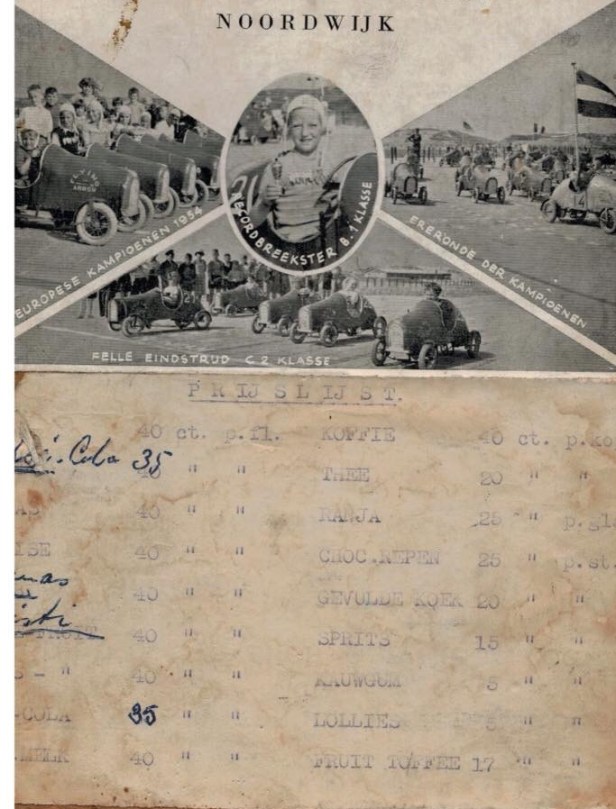 NOORDWIJK
EUROPESE KAMPIOENEN 1954
RECORDBREEKSTER B.1 KLASSE
ERERONDE DER KAMPIOENEN
21
FELLE EINDSTRIJD C 2 KLASSE
PRIJSLIJST.
40 ct. p.fl. KOFFIE 40 ct. p.ko
Cola 35
40 " " THEE 20 " "
AS 40 " " RANJA 25 " p.gla
ISE 40 " " CHOC.REPEN 25 " p.st.
nas
40 " " GEVULDE KOEK 20 " "
40 " " SPRITS 15 " "
S - " 40 " " KAUWGUM 5 " "
COLA 35 " " LOLLIES " "
MELK 40 " " FRUIT TOFFEE 17 " "